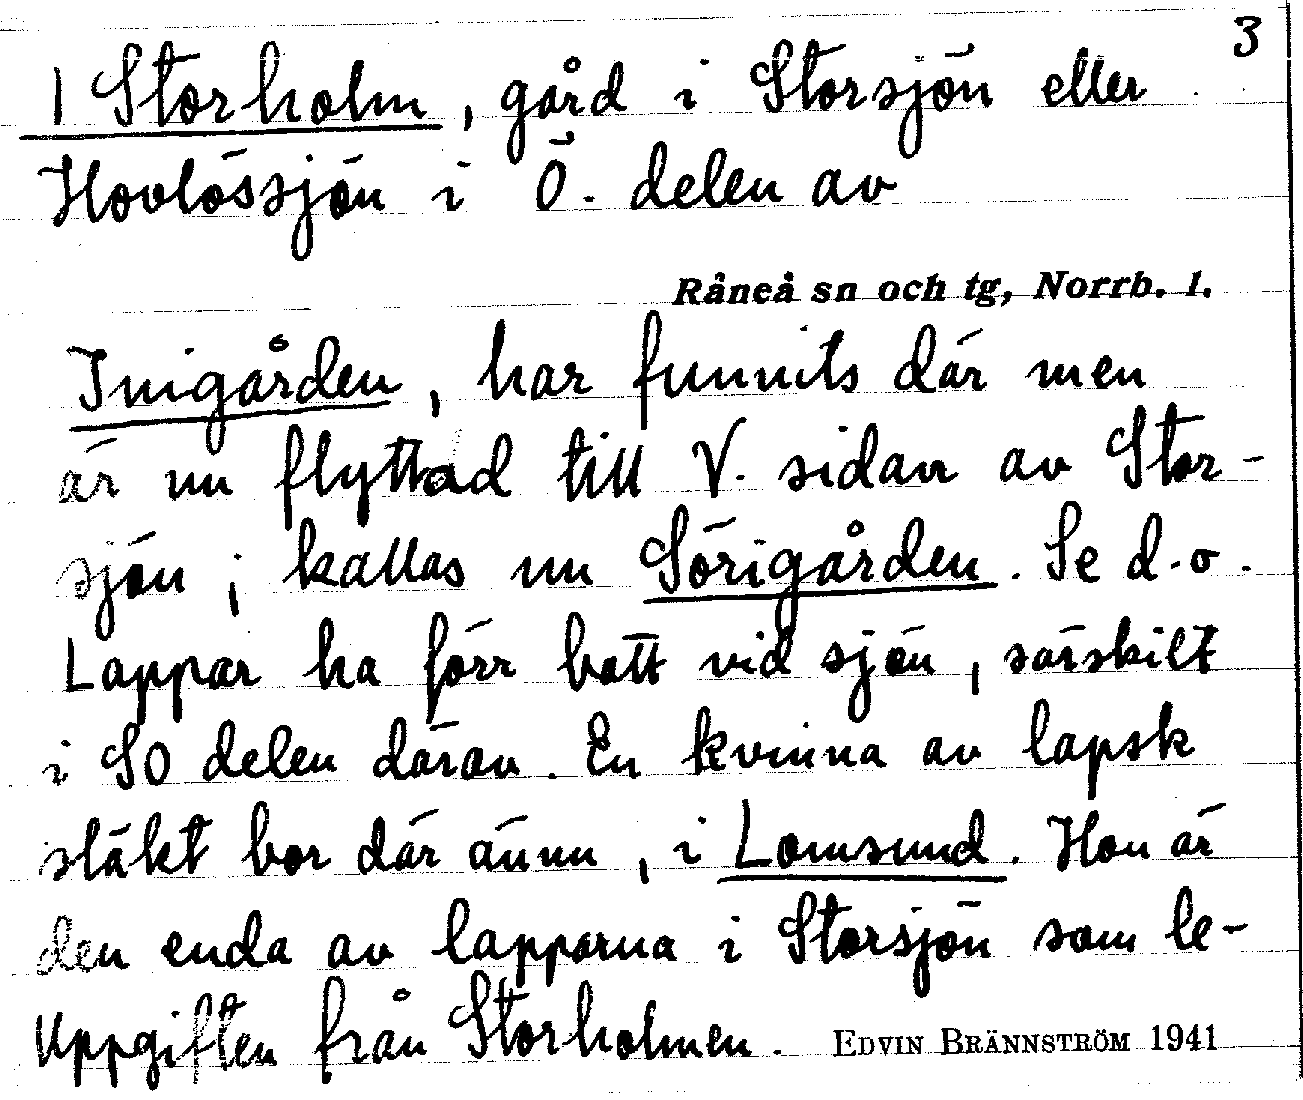 3
1 Storholm, gård i Storsjön eller
Hovlössjön i Ö. delen av
Råneå sn och tg, Norrb. l.
Inigården, har funnits där men
är nu flyttad till V. sidan av Stor-
sjön; kallas nu Sörigården. Se d.o.
Lappar ha förr bott vid sjön, särskilt
i SO delen därav. En kvinna av lapsk
släkt bor där ännu, i Lomsund. Hon är
den enda av lapparna i Storsjön som le-
Uppgiften från Storholmen. EDVIN BRÄNNSTRÖM 1941